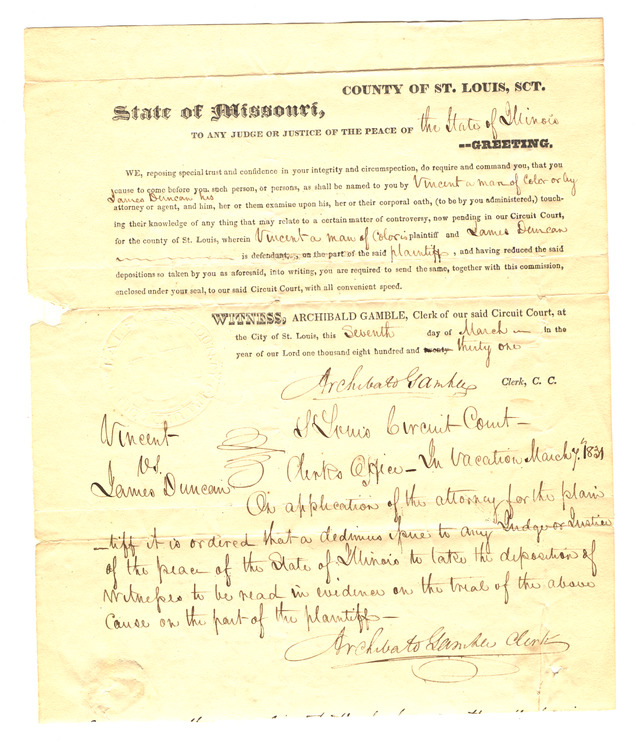 COUNTY OF ST. LOUIS, SCT.
State of Missouri,
TO ANY JUDGE OR JUSTICE OF THE PEACE OF the State of Illinois
--GREETING.
WE, reposing special trust and confidence in your integrity and circumspection, do require and command you, that you
cause to come before you, such person, or persons, as shall be named to you by Vincent a man of Color or by
James Duncan his
attorney or agent, and him, her or them examine upon his, her or their corporal oath, (to be by you administered,) touch-
ing their knowledge of any thing that may relate to a certain matter of controversy, now pending in our Circuit Court,
for the county of St. Louis, wherein Vincent a man of Color is plaintiff and James Duncan
is defendant, on the part of the said plaintiff, and having reduced the said
depositions so taken by you as aforesaid, into writing, you are required to send the same, together with this commission,
enclosed under your seal, to our said Circuit Court, with all convenient speed.
WITNESS, ARCHIBALD GAMBLE, Clerk of our said Circuit Court, at
the City of St. Louis, this Seventh day of March in the
year of our Lord one thousand eight hundred and twenty thirty one
Archibald Gamble Clerk, C. C.
Vincent
vs.
James Duncan
St Louis Circuit Court—
Clerks Office — In Vacation March 7th 1831
On application of the attorney for the plain
—tiff it is ordered that a dedimus issue to any Judge or Justice
of the peace of the State of Illinois to take the deposition of
Witnesses to be read in evidence on the trial of the above
Cause on the part of the plaintiff—
Archibald Gamble Clerk